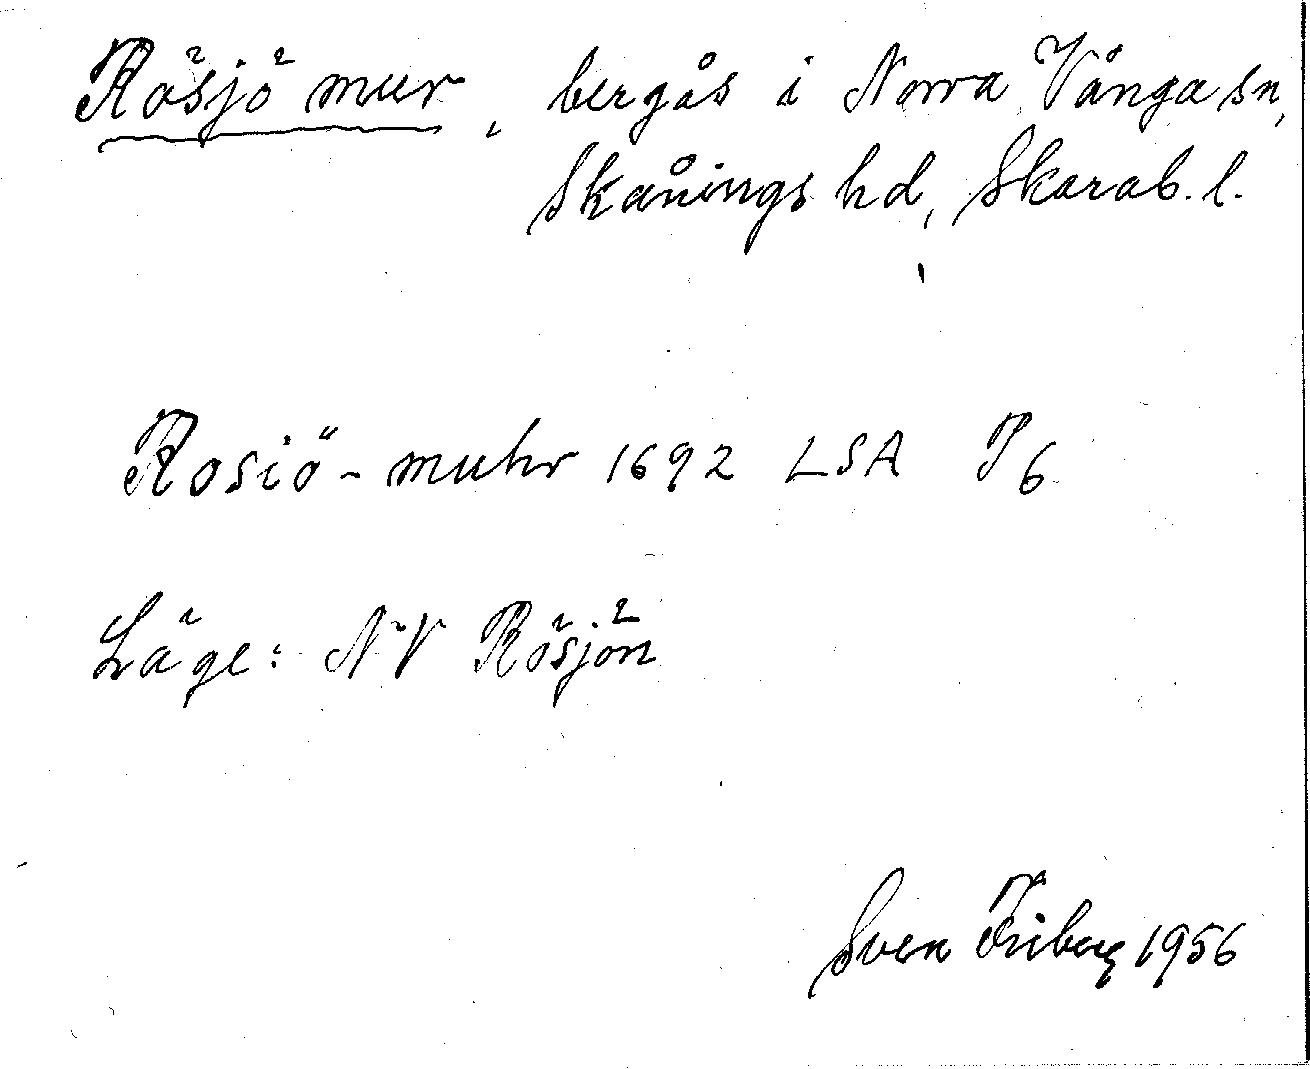 Rösjö mur, bergås i Norra Vånga sn,
Skånings hd, Skarab. l.
Rosiö-muhr 1692 LSA P6
Läge: NV Rösjön
Sven Friberg 1956